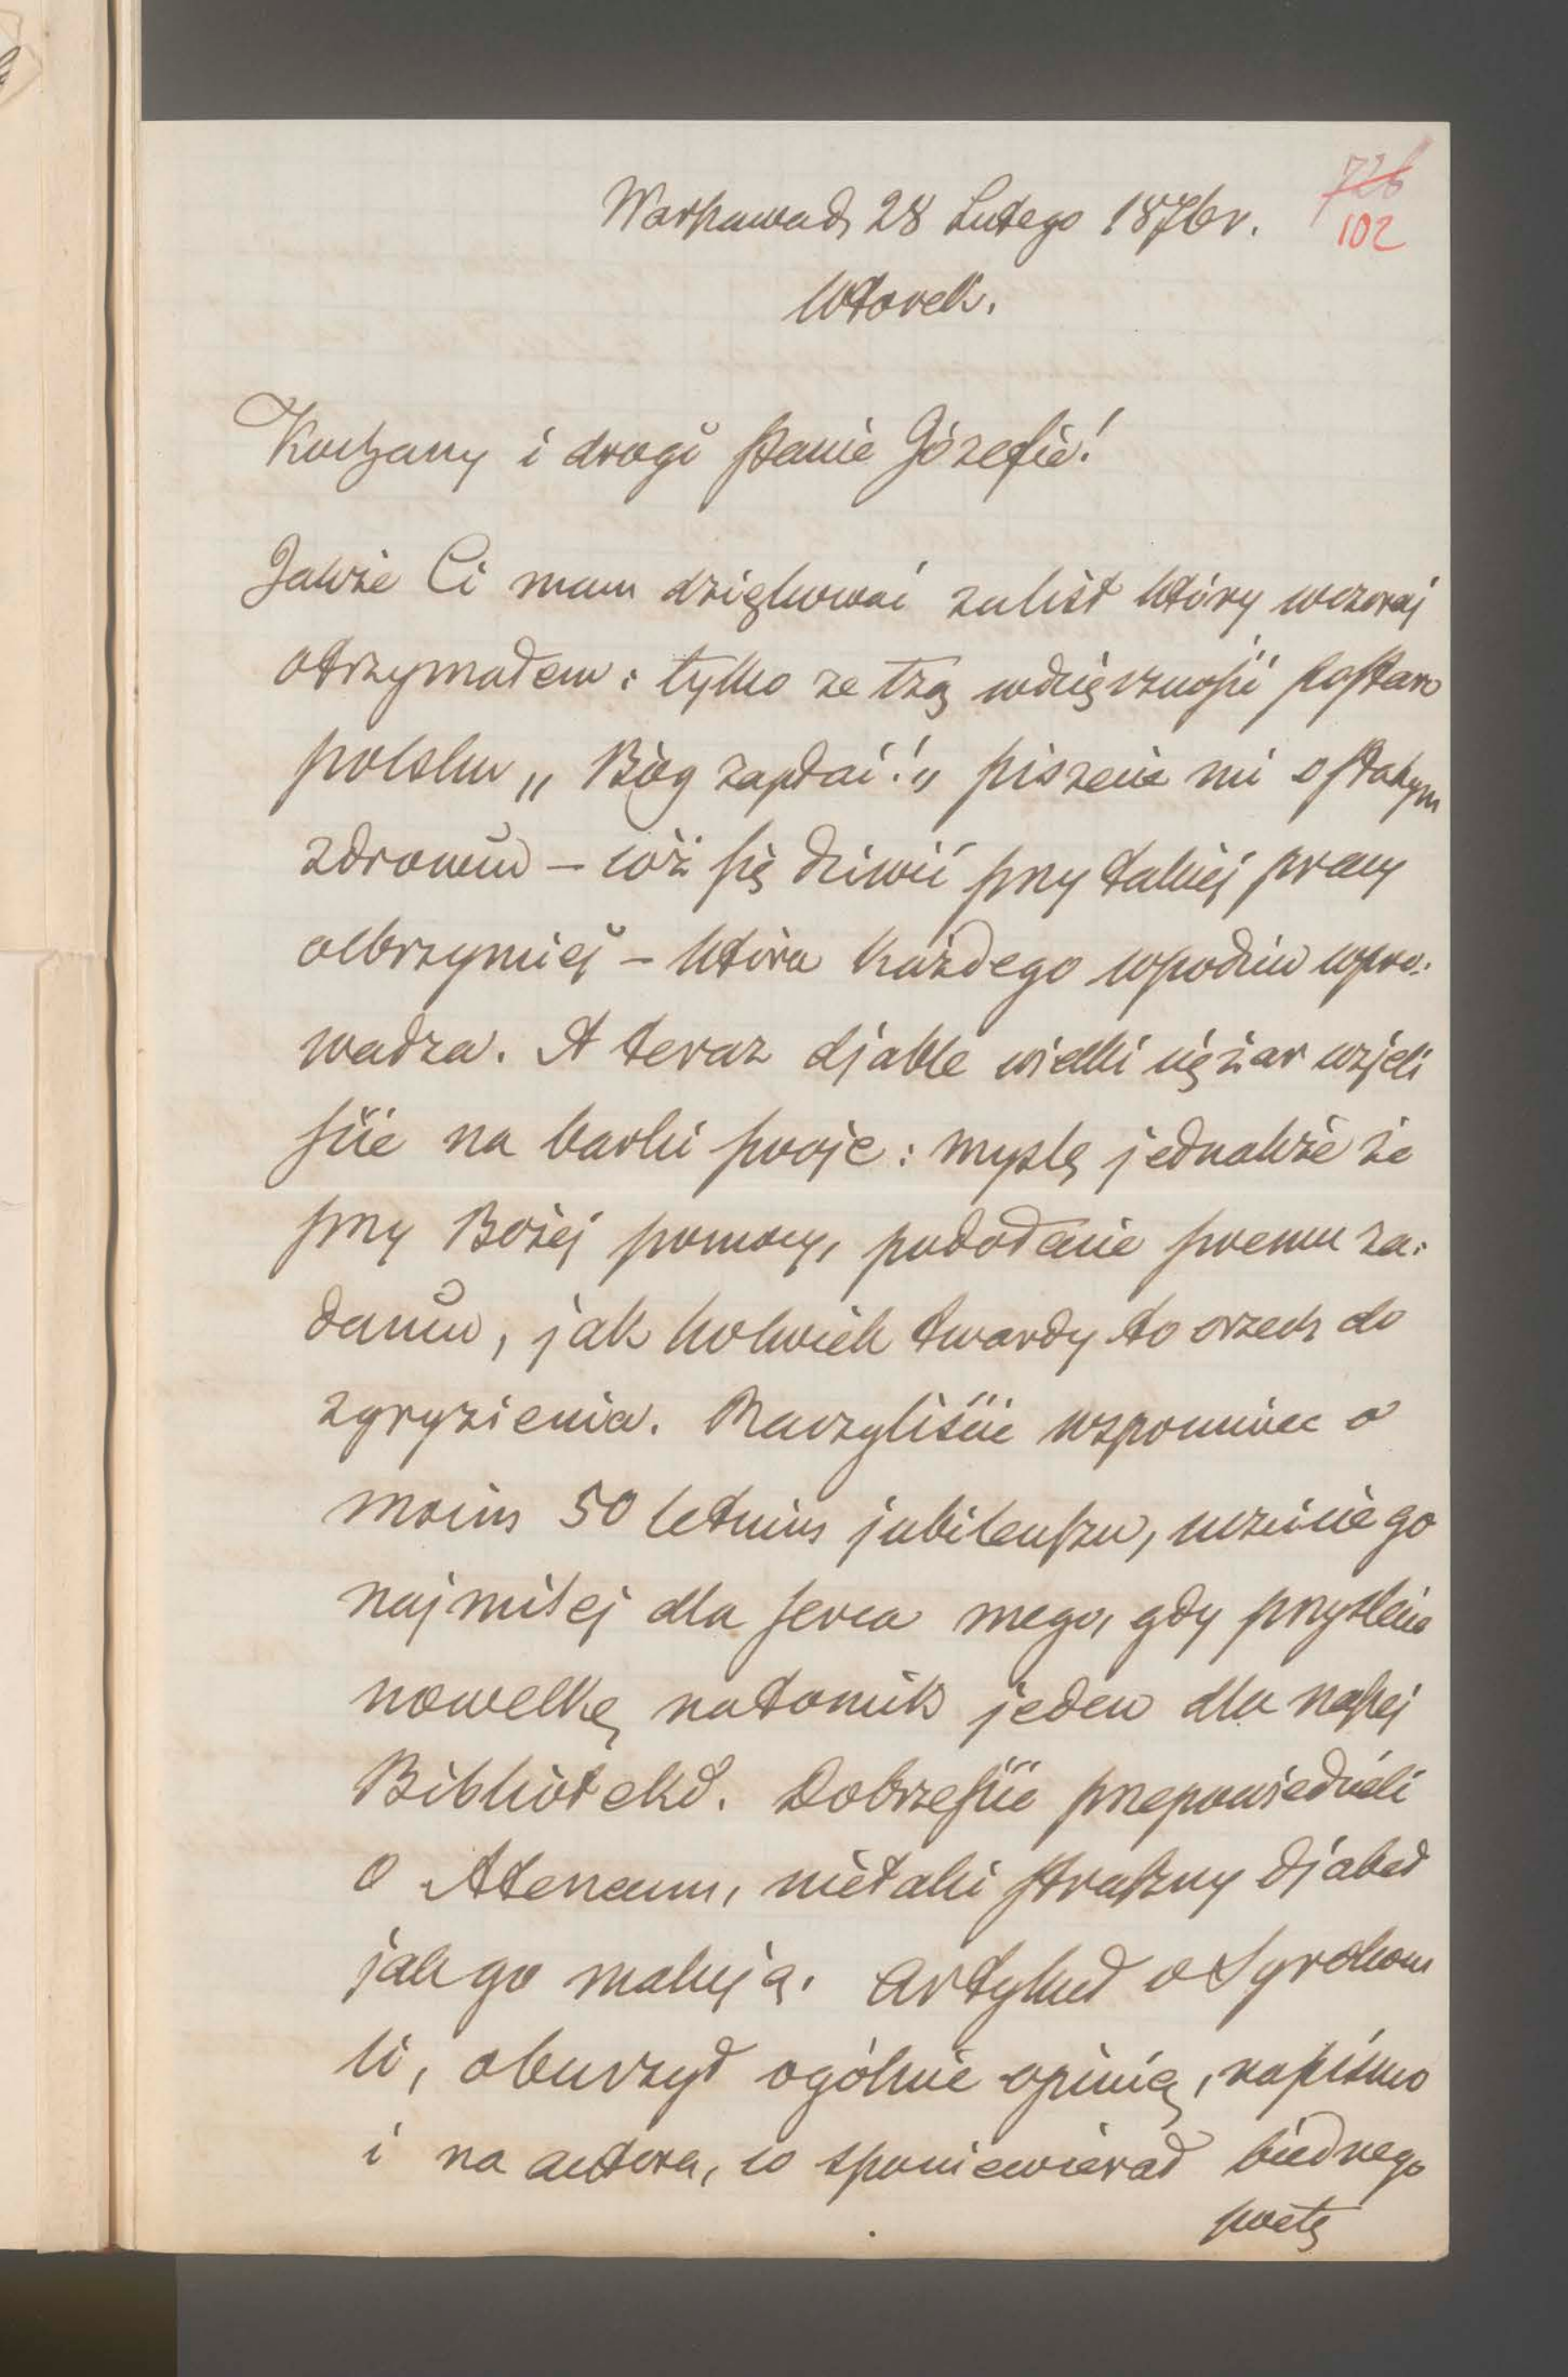 726
102
Warszawa d, 28 Lutego 1876 r.
Wtorek.
Kochany i drogi Panie Józefie!
Jakże Ci mam dziękować za list który wczoraj
otrzymałem: tylko ze łzą wdzięczności po staro
polsku „Bóg zapłać!„ piszecie mi o słabym
zdrowiu – cóż się dziwić przy takiej pracy
olbrzymiej – która każdego w podziw wpro-
wadza. A teraz djable wielki ciężar wzjeli
ście na barki swoje: myślę jednakże że
przy Bożej pomocy, podołacie swemu za-
daniu, jak kolwiek twardy to orzech do
zgryzienia. Raczyliście wspomnieć o
moim 50 letnim jubileuszu, uczcicie go
najmilej dla serca mego, gdy przyślecie
nowelkę na tomik jeden dla naszej
Bibliotekì. Dobrzeście przepowiedzieli
o Ateneum, nie taki straszny djabeł
jak go malują. Artykuł o Syrokom
li, oburzył ogólnie opinię, na pismo
i na autora, co sponiewierał biednego
poetę